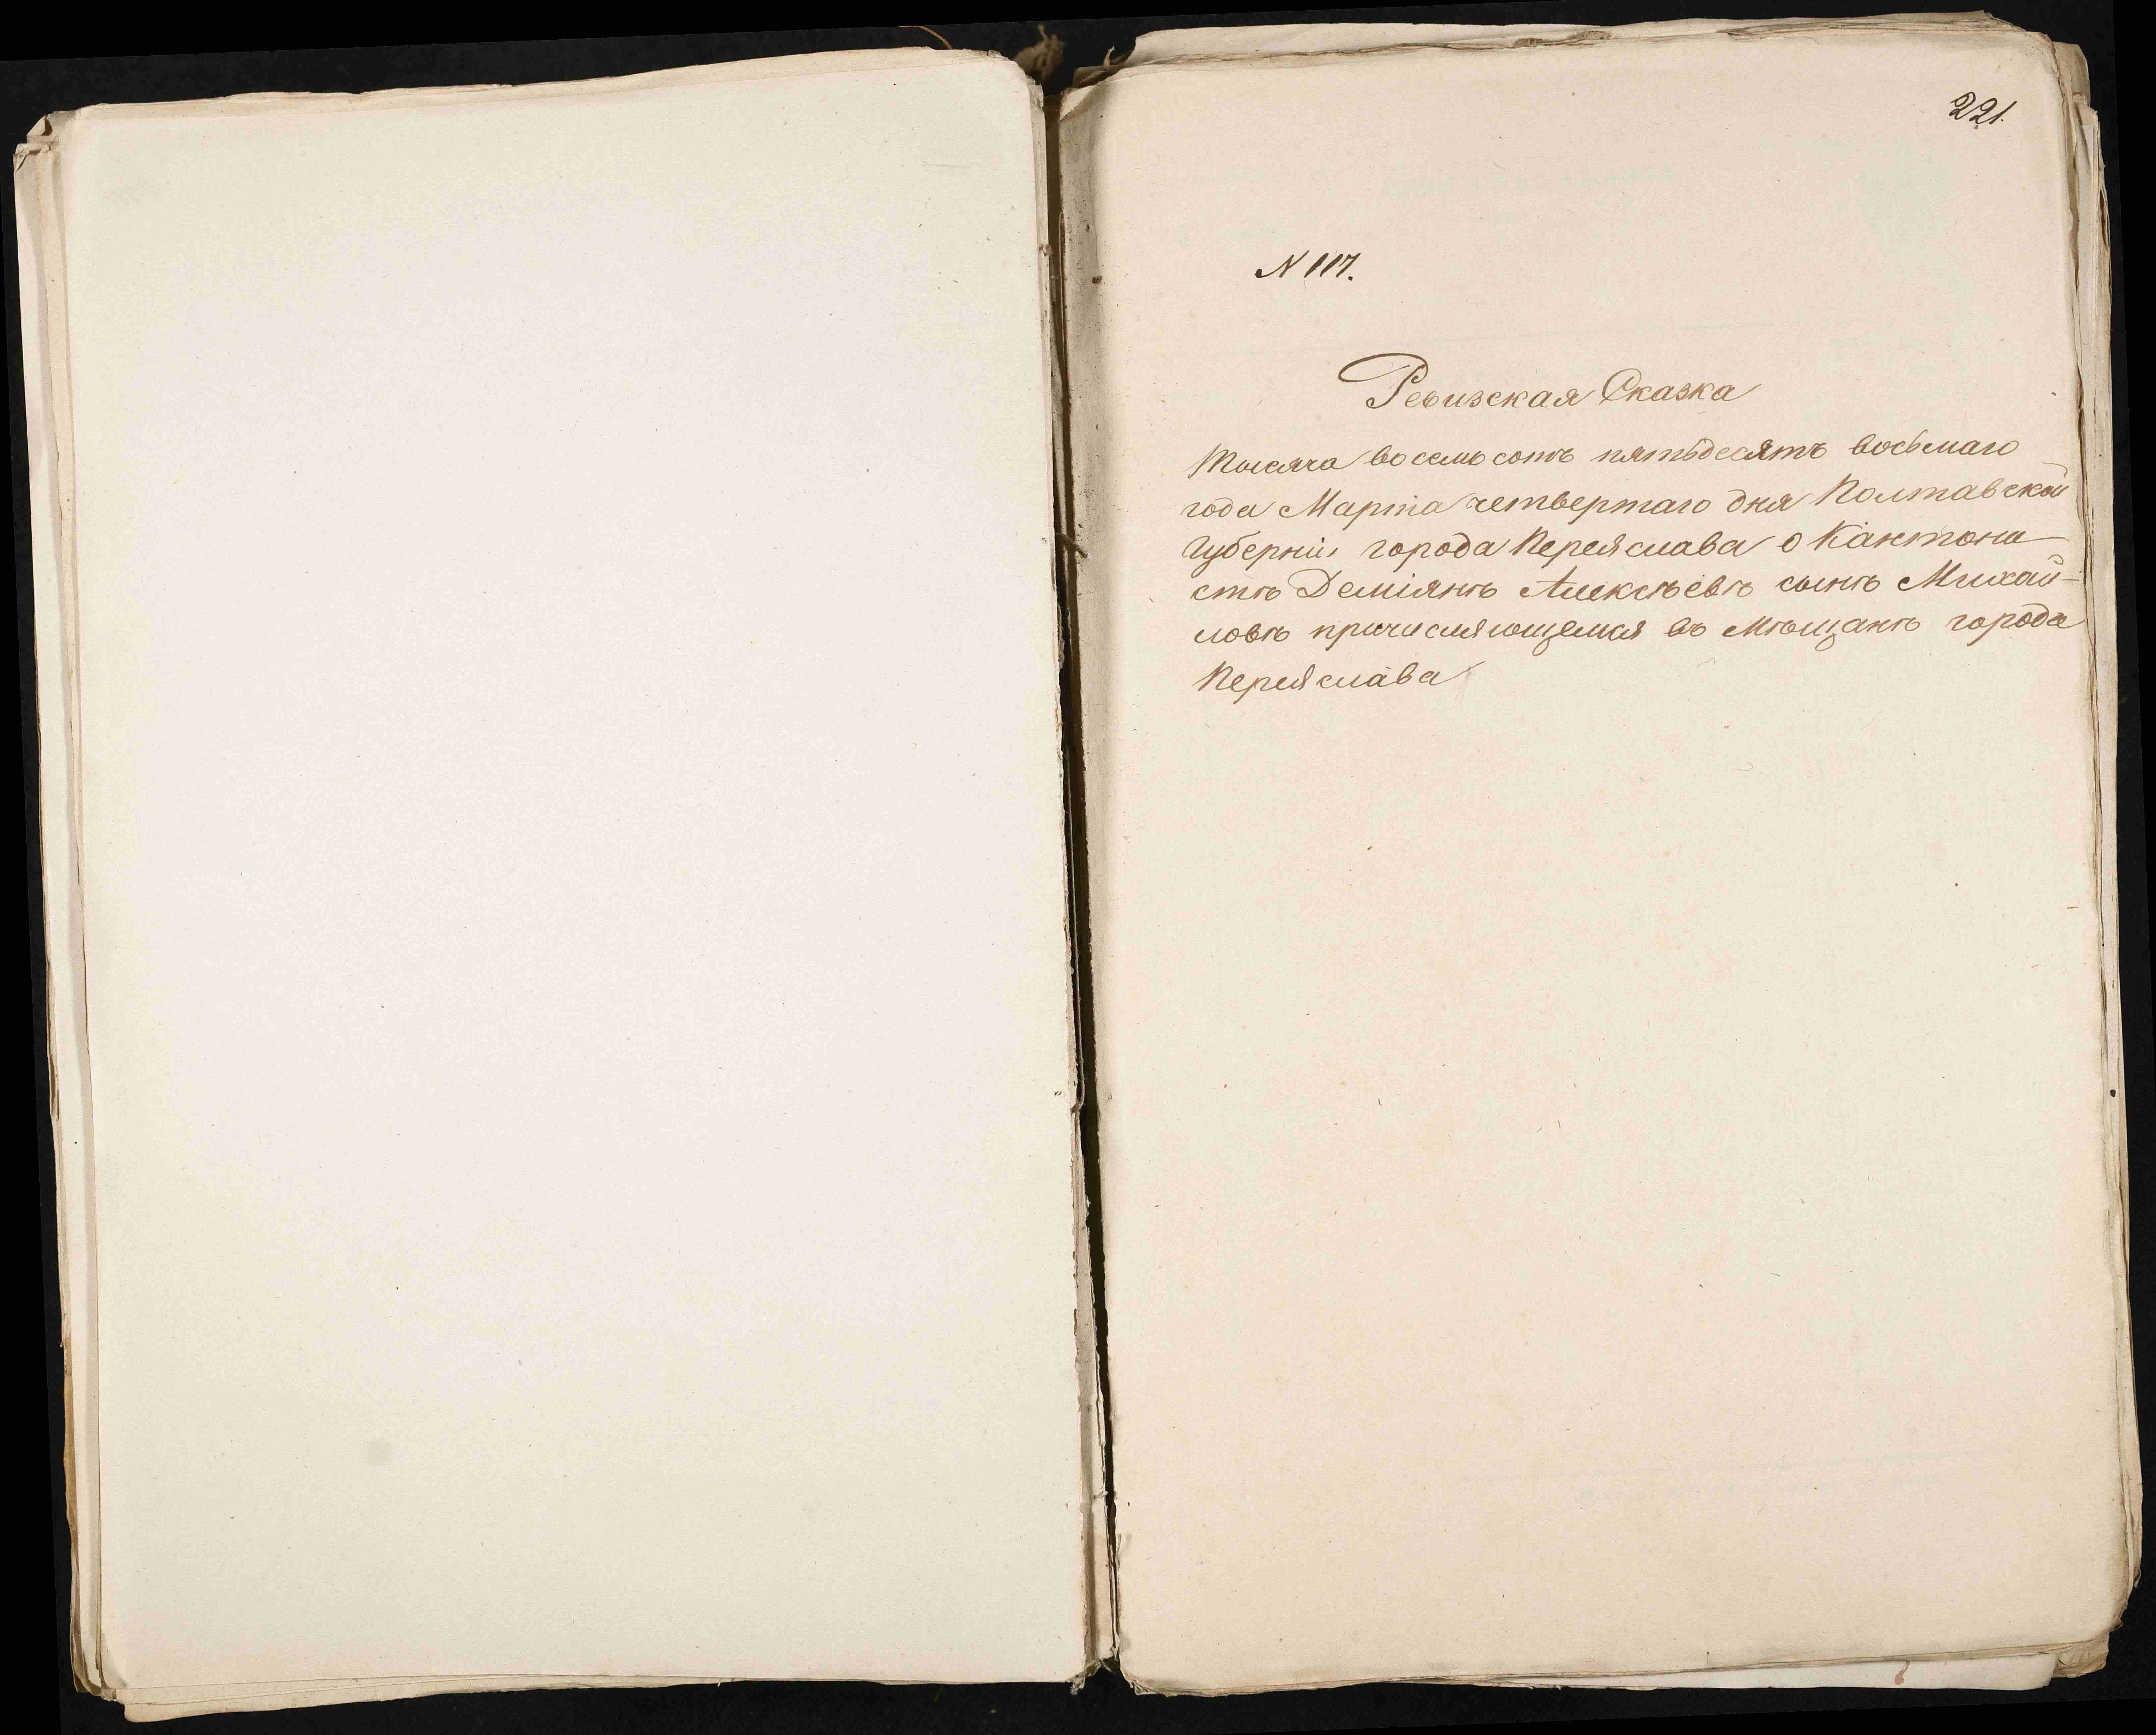 221.
N 117.
Ревизская Сказка
Тысяча восемьсотъ пятьдесятъ восьмаго
года Марта четвертаго дня Полтавской
Губерніи города Переяслава о Кантони-
стѣ Деміянѣ Алексѣевѣ сынѣ Михай-
ловѣ причисляющемся въ Мѣщанѣ города
Переяслава